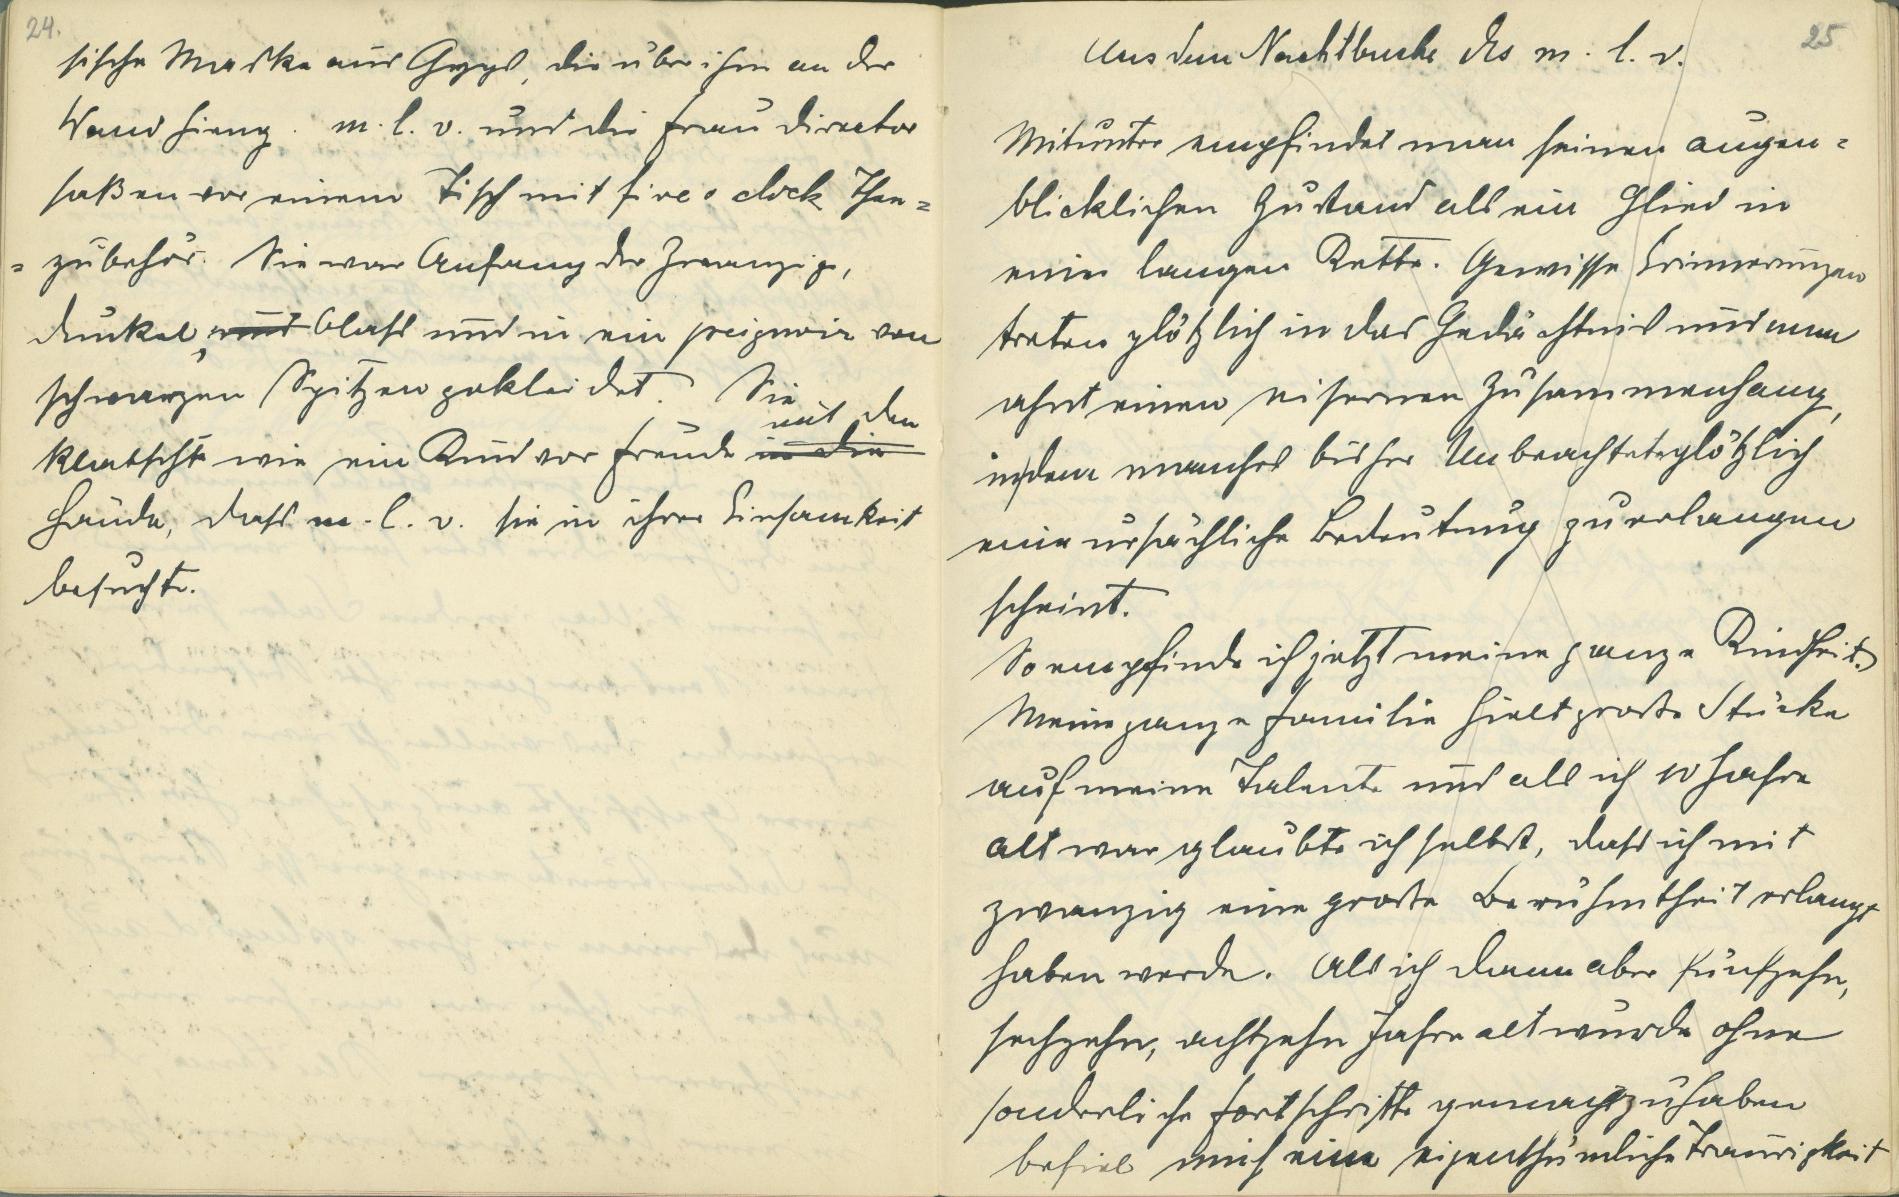 24.
sische Maske aus Gyps, die über ihm an der
Wand hieng. m. l. v. und die Frau Director
saßen vor einem Tisch mit five o clock Thee=
=zubehör. Sie war Anfang der Zwanzig,
dunkel, und blass und in ein peignoir von
schwarzen Spitzen gekleidet. Sie
klatschte wie ein Kind vor Freude in die mit den
Hände, dass m. l. v. sie in ihrer Einsamkeit
besuchte.
25
Aus dem Nachtbuche des m. l. v.
Mitunter empfindet man seinen augen=
blicklichen Zustand als ein Glied in
einer langen Kette. Gewisse Erinnerungen
treten plötzlich in das Gedächtnis und man
ahnt einen eisernen Zusammenhang,
indem manches bisher Unbeachtete plötzlich
eine ursächliche Bedeutung zu erlangen
scheint.
So empfinde ich jetzt meine ganze Kindheit.
Meine ganze Familie hielt große Stücke
auf meine Talente und als ich 10 Jahre
alt war glaubte ich selbst, dass ich mit
zwanzig eine große Berühmtheit erlangt
haben werde. Als ich dann aber fünfzehn,
sechzehn, achtzehn Jahre alt wurde ohne
sonderliche Fortschritte gemacht zu haben
befiel mich eine eigenthümliche Traurigkeit